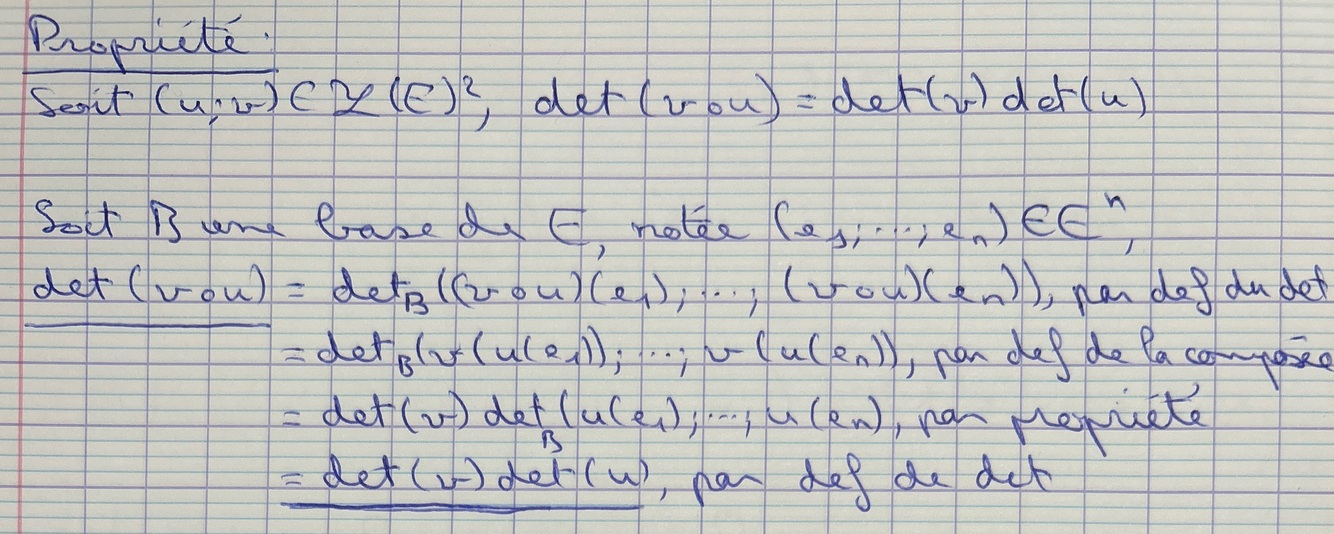 Propriété :
Soit (u;v) ∈ ℒ(E)², det(v∘u) = det(v) det(u)
Soit B une base de E, notée (e₁;...;eₙ) ∈ Eⁿ,
det(v∘u) = det_B((v∘u)(e₁);...;(v∘u)(eₙ)), par def du det
= det_B(v(u(e₁));...;v(u(eₙ)), par def de la composée
= det(v) det_B(u(e₁);...;u(eₙ), par propriété
= det(v) det(u), par def de det